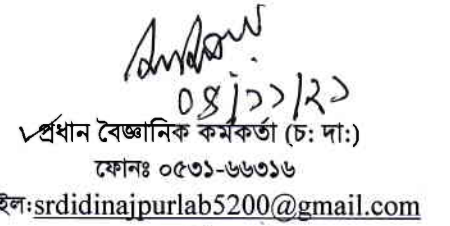 ০৪/১১/২১
প্রধান বৈজ্ঞানিক কর্মকর্তা (চ: দা:)
ফোনঃ ০৫৩১-৬৬৩১৬
ইল:srdidinajpurlab5200@gmail.com